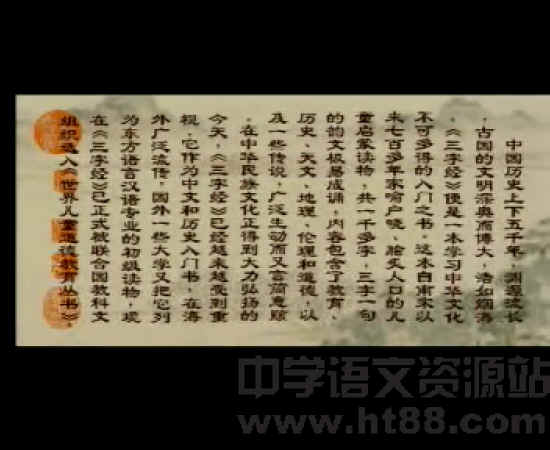 中国历史上下五千年,渊源流长
,古国的文明深奥而博大,浩如烟海
。《三字经》便是一本学习中华文化
不可多得的入门之书。这本自南宋以
来七百多年家喻户晓、脍炙人口的儿
童启蒙读物,共一千多字,三字一句
的韵文极易成诵,内容包含了教育、
历史、天文、地理、伦理和道德,以
及一些传说,广泛生动而又言简意赅
。在中华民族文化正得到大力弘扬的
今天,《三字经》已经越来越受到重
视,它作为中文和历史入门书,在海
外广泛流传,国外一些大学又把它列
为东方语言汉语专业的初级读物,现
在《三字经》已正式被联合国教科文
组织选入《世界儿童道德教育丛书》。
中学语文资源站
www.ht88.com